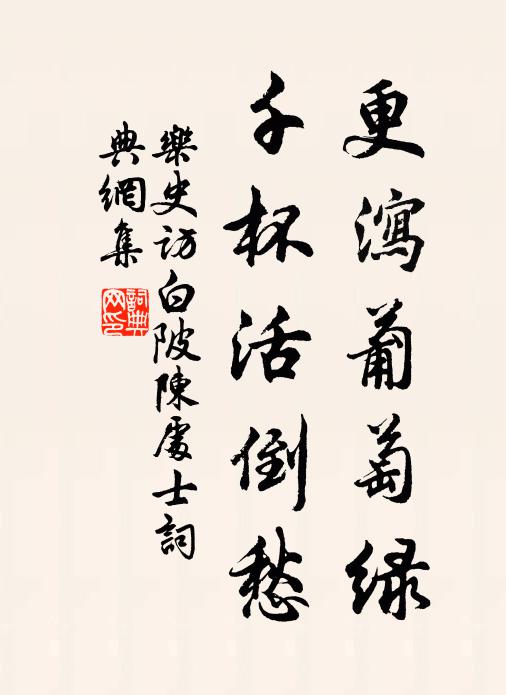 更瀉葡萄綠
千杯活倒愁
樂史訪白陂陳處士詞
典網集
詞典網印